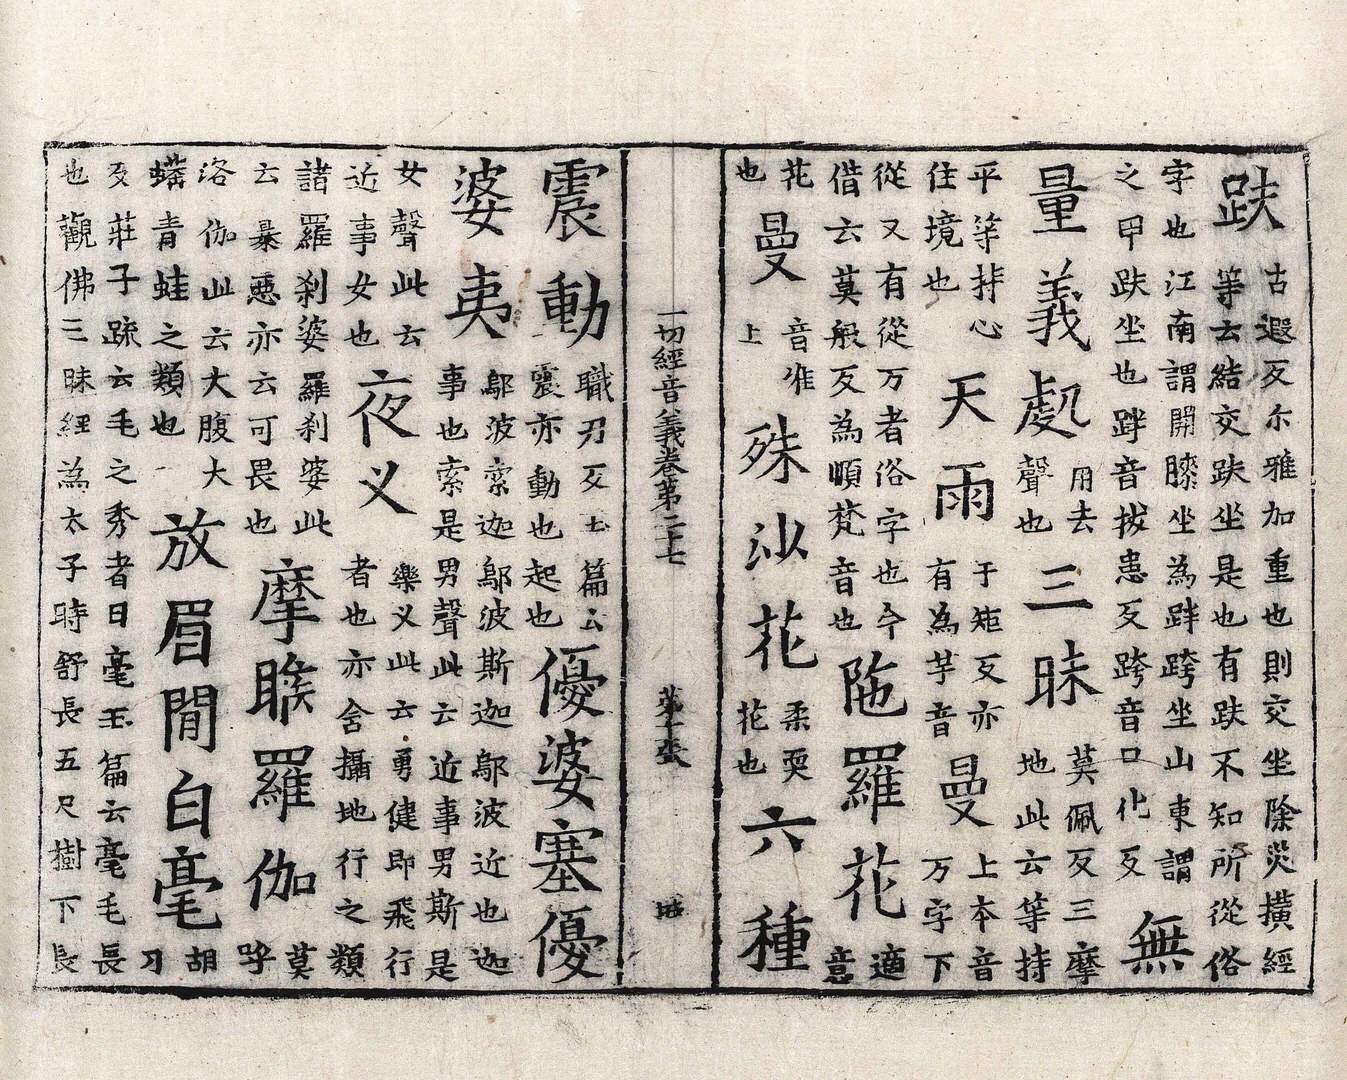 趺古遐反尒雅加重也則交坐除災擴經等云結交趺坐是也有趺不知所從俗
字也江南謂開膝坐為跘跨坐山東謂之甲趺坐也跘音拔患反跨音口化反無
量義處用去聲也三昧莫佩反三摩地此云等持
平等持心住境也天雨于矩反亦有為芋音曼上本音万字下
從又有從万者俗字也今借云莫般反為順梵音也陁羅花適意
花也曼音准上殊沙花柔耎花也六種
一切經音義卷第二十七 第十張
震動職刃反玉篇云震亦動也起也優婆塞優
婆夷鄔波索迦鄔波斯迦鄔波近也迦事也索是男聲此云近事男斯是
女聲此云近事女也夜义藥义此云勇健即飛行者也亦舍攝地行之類
諸羅剎婆羅剎婆此云暴惡亦云可畏也摩睺羅伽莫呼
洛伽此云大腹大蟒青蛙之類也放眉間白毫胡刀
反莊子䟽云毛之秀者曰毫玉篇云毫毛長也觀佛三昧經為太子時舒長五尺樹下長